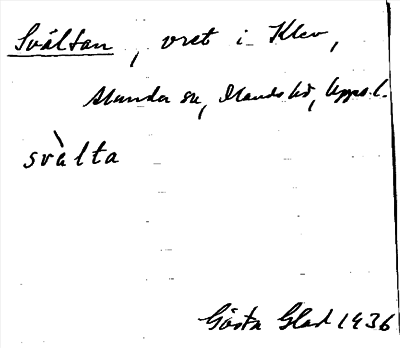 Svältan, vret i Klev,
Alunda sn, Olands hd, Upps. l.
svàlta
Gösta Glad 1936